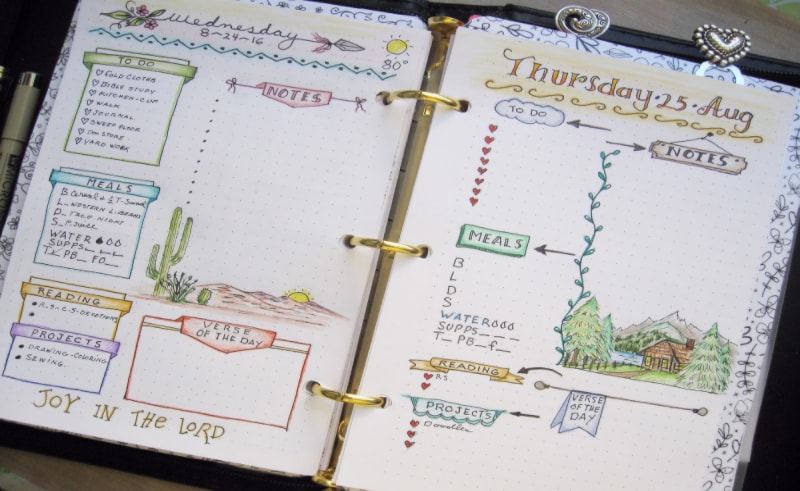 Wednesday
8-24-16
80°
TO DO
FOLD CLOTHS
BIBLE STUDY
KITCHEN-CUP
WALK
JOURNAL
SWEEP FLOOR
STORE
YARD WORK
NOTES
MEALS
B Cereal &
L_ WESTERN
D_ TACO NIGHT
S_ JUICE
WATER
SUPPS
T_ PB_ FO_
READING
PROJECTS
DRAWING-COLORING
SEWING
VERSE
OF THE DAY
JOY IN THE LORD
Thursday·25·Aug
TO DO
NOTES
MEALS
B
L
D
S
WATER
SUPPS
T_ PB_f_
READING
RS
PROJECTS
Doodles
VERSE
OF THE
DAY
MICRON